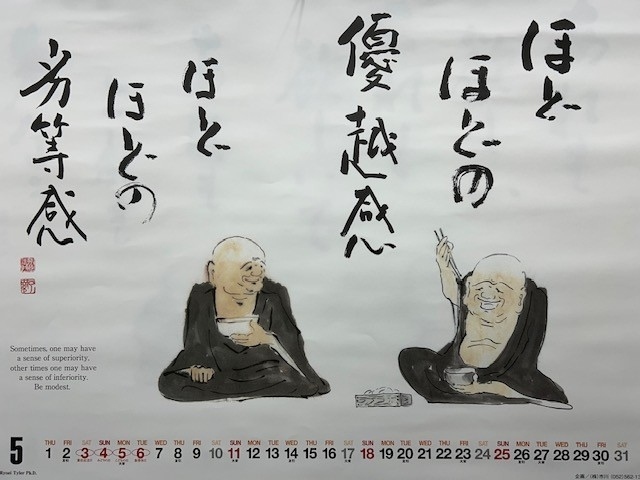 ほど
ほどの
優越感
ほど
ほどの
劣等感
Sometimes, one may have
a sense of superiority,
other times one may have
a sense of inferiority.
Be modest.
5
THU FRI SAT SUN MON TUE WED THU FRI SAT SUN MON TUE WED THU FRI SAT SUN MON TUE WED THU FRI SAT SUN MON TUE WED THU FRI SAT
1 2 3 4 5 6 7 8 9 10 11 12 13 14 15 16 17 18 19 20 21 22 23 24 25 26 27 28 29 30 31
Tyler Ph.D.